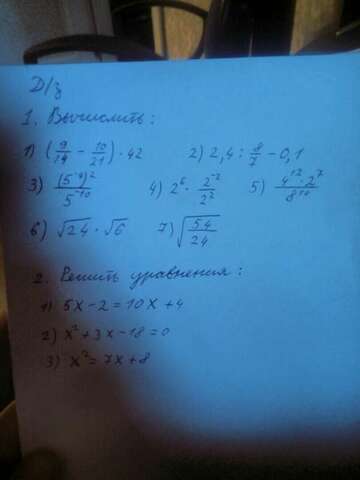 Д/з
1. Вычислить:
1) (9/14 − 10/21) · 42 2) 2,4 : 8/7 − 0,1
3) (5⁻⁴)²/5⁻¹⁰ 4) 2⁶ · 2⁻²/2² 5) 4¹² · 2⁷/8¹⁰
6) √24 · √6 7) √(54/24)
2. Решить уравнения:
1) 5x − 2 = 10x + 4
2) x² + 3x − 18 = 0
3) x² = 7x + 8